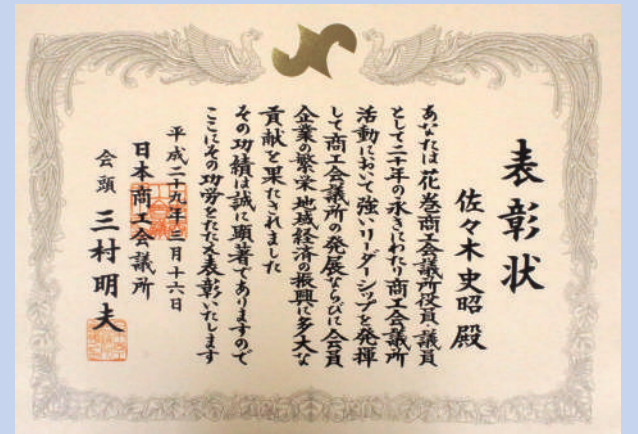 表彰状
佐々木史昭 殿
あなたは花巻商工会議所役員・議員
として二十年の永きにわたり商工会議所
活動において強いリーダーシップを発揮
して商工会議所の発展ならびに会員
企業の繁栄 地域経済の振興に多大な
貢献を果たされました
その功績は誠に顕著でありますので
ここにその功労をたたえ表彰いたします
平成二十九年三月十六日
日本商工会議所
会頭 三村明夫